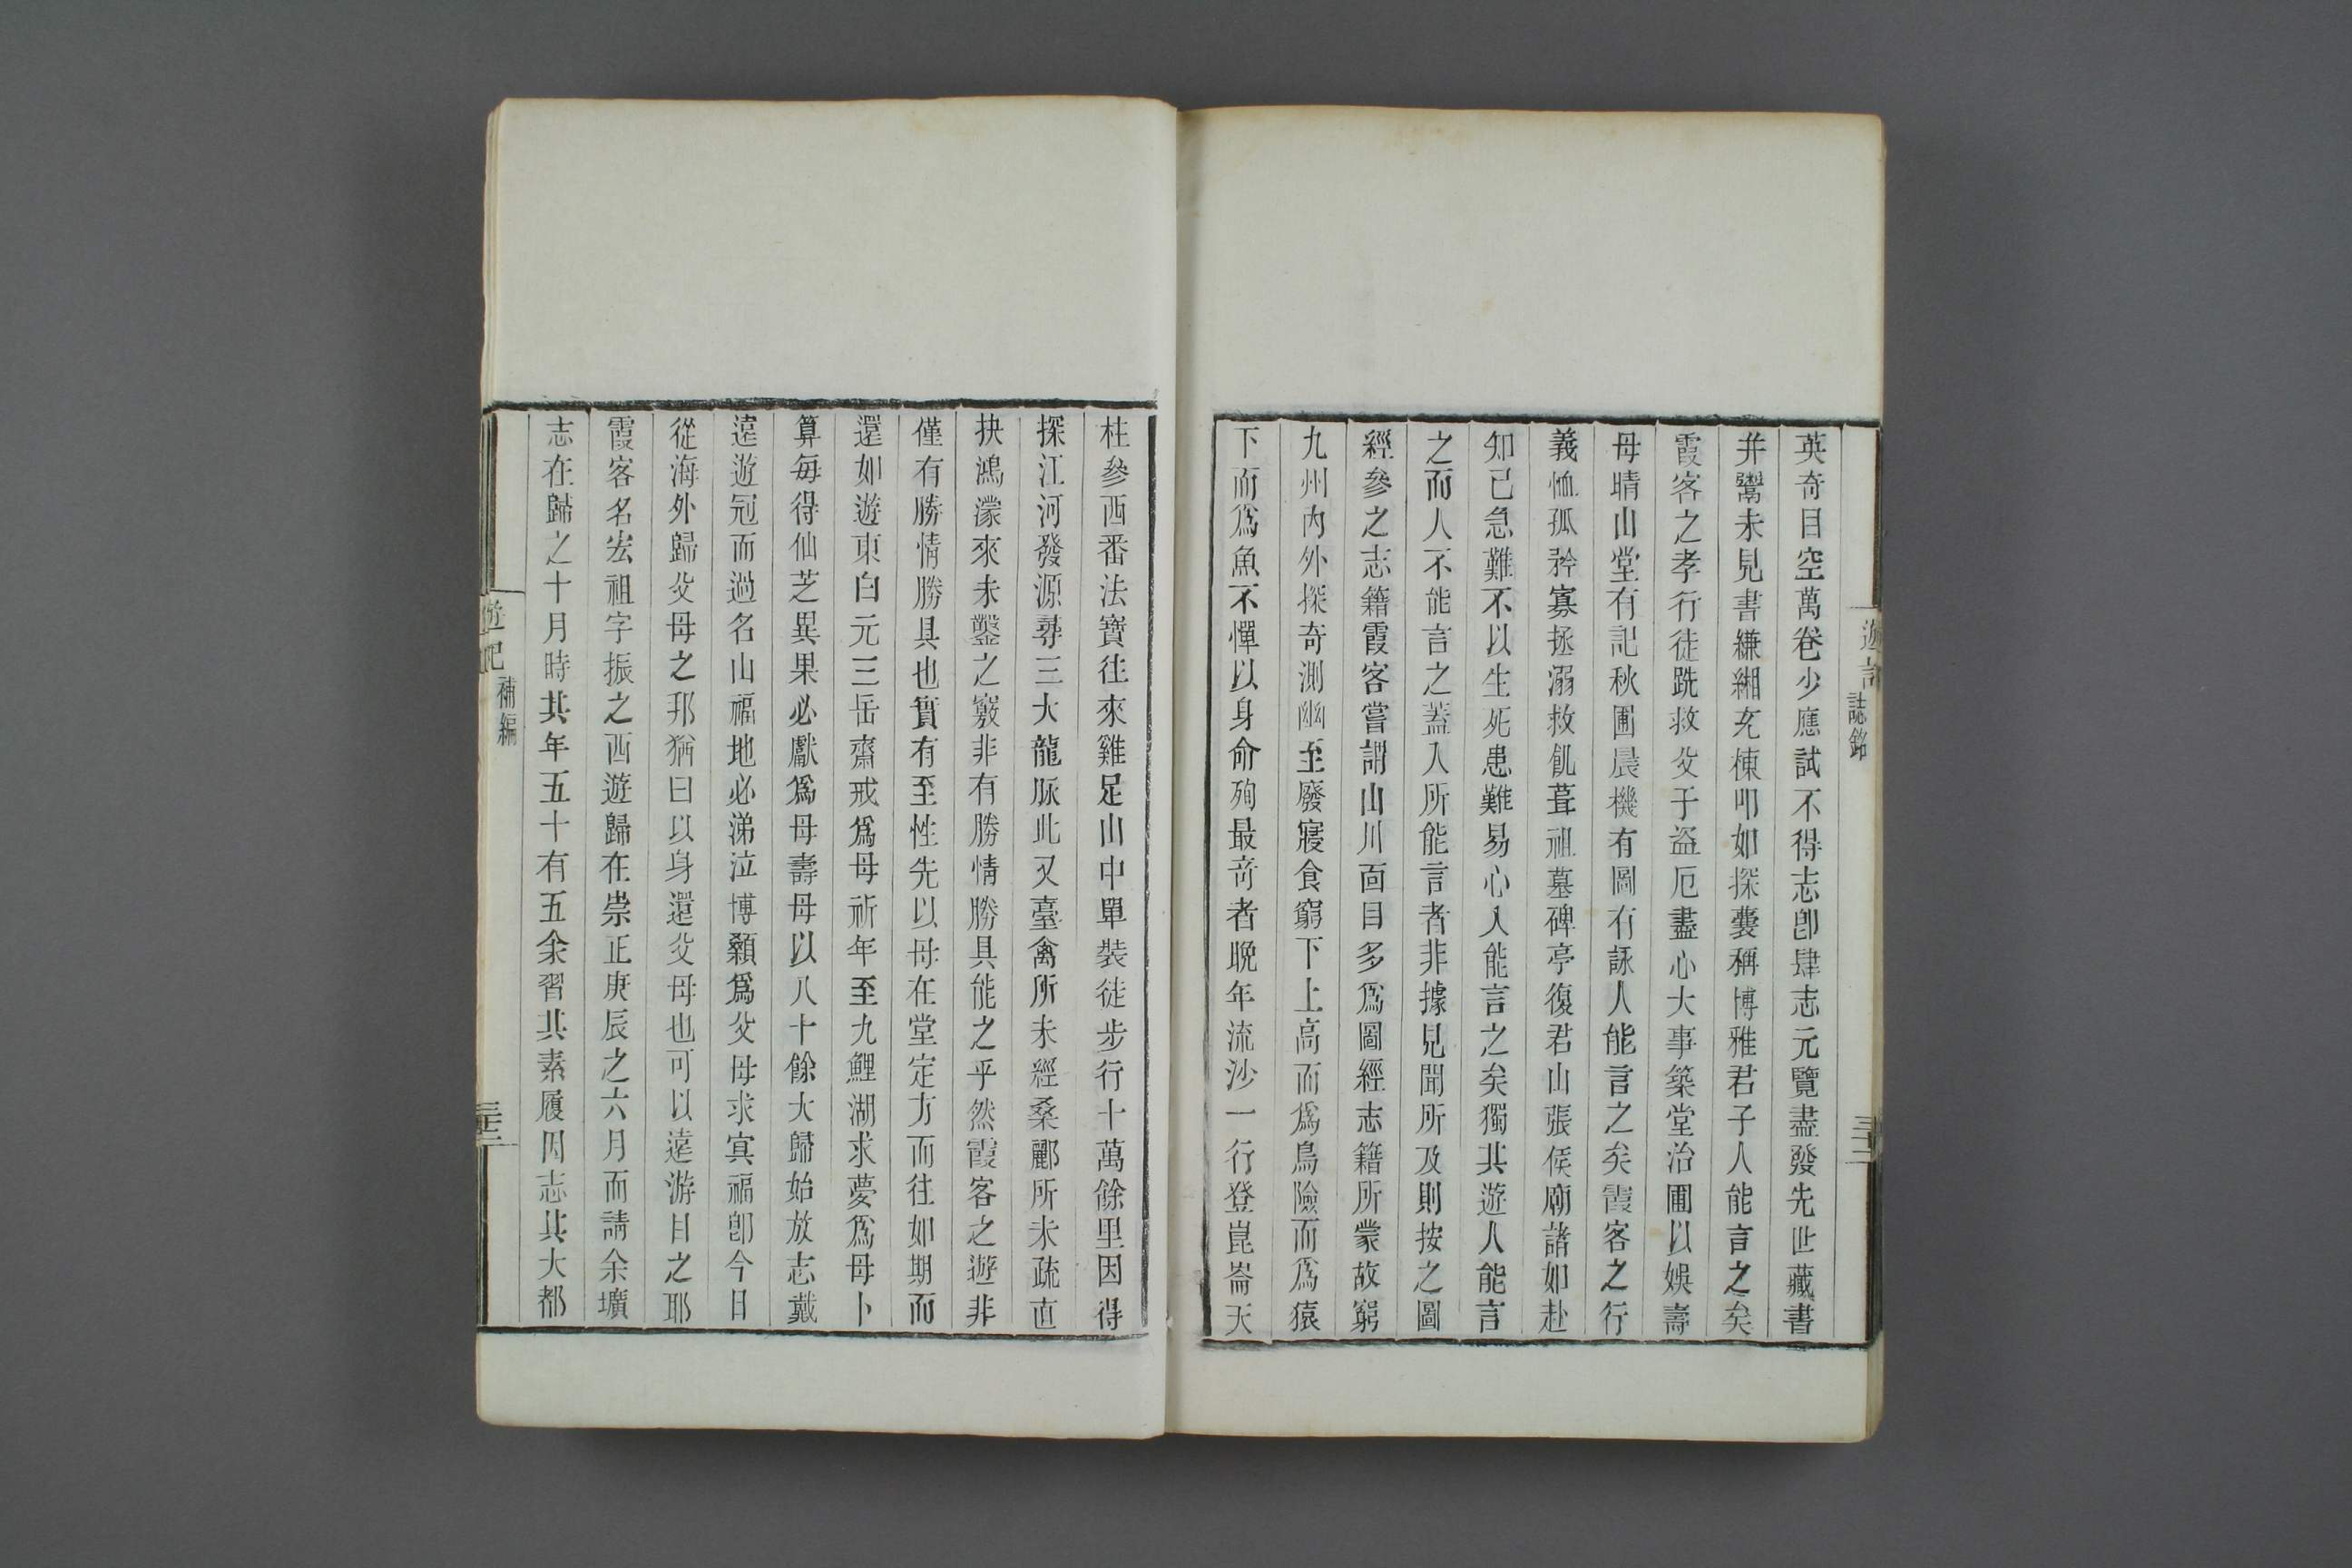 遊記
誌銘
英奇目空萬卷少應試不得志卽肆志元覽盡發先世藏書
并鬻未見書縑緗充棟叩如探囊稱博雅君子人能言之矣
霞客之孝行徒跣救父于盜厄盡心大事築堂治圃以娛壽
母晴山堂有記秋圃晨機有圖有詠人能言之矣霞客之行
義恤孤矜寡拯溺救飢葺祖墓碑亭復君山張侯廟諸如赴
知己急難不以生死患難易心人能言之矣獨其遊人能言
之而人不能言之蓋人所能言者非據見聞所及則按之圖
經參之志籍霞客嘗謂山川面目多爲圖經志籍所蒙故窮
九州內外探奇測幽至廢寢食窮下上高而爲鳥險而爲猿
下而爲魚不憚以身命殉最奇者晚年流沙一行登崑崙天
柱參西番法寶往來雞足山中單裝徒步行十萬餘里因得
探江河發源尋三大龍脈此又臺禽所未經桑酈所未疏直
抉鴻濛來未鑿之竅非有勝情勝具能之乎然霞客之遊非
僅有勝情勝具也實有至性先以母在堂定方而往如期而
還如遊東白元三岳齋戒爲母祈年至九鯉湖求夢爲母卜
算每得仙芝異果必獻爲母壽母以八十餘大歸始放志戴
遠遊冠而過名山福地必涕泣博顙爲父母求冥福卽今日
從海外歸父母之邦猶曰以身還父母也可以遠游目之耶
霞客名宏祖字振之西遊歸在崇正庚辰之六月而請余壙
志在歸之十月時其年五十有五余習其素履因志其大都
遊記
補編